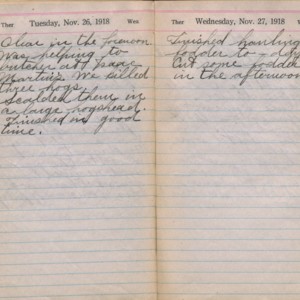 Ther
Tuesday, Nov. 26, 1918
Wea
Clear in the forenoon
Was helping to
butcher at Isaac
Martins. We killed
three hogs
scalded them in
a huge hogshead.
Finished in good
time.
Ther
Wednesday, Nov. 27, 1918
Finished hauling
fodder to-day
Cut some fodder
in the afternoon